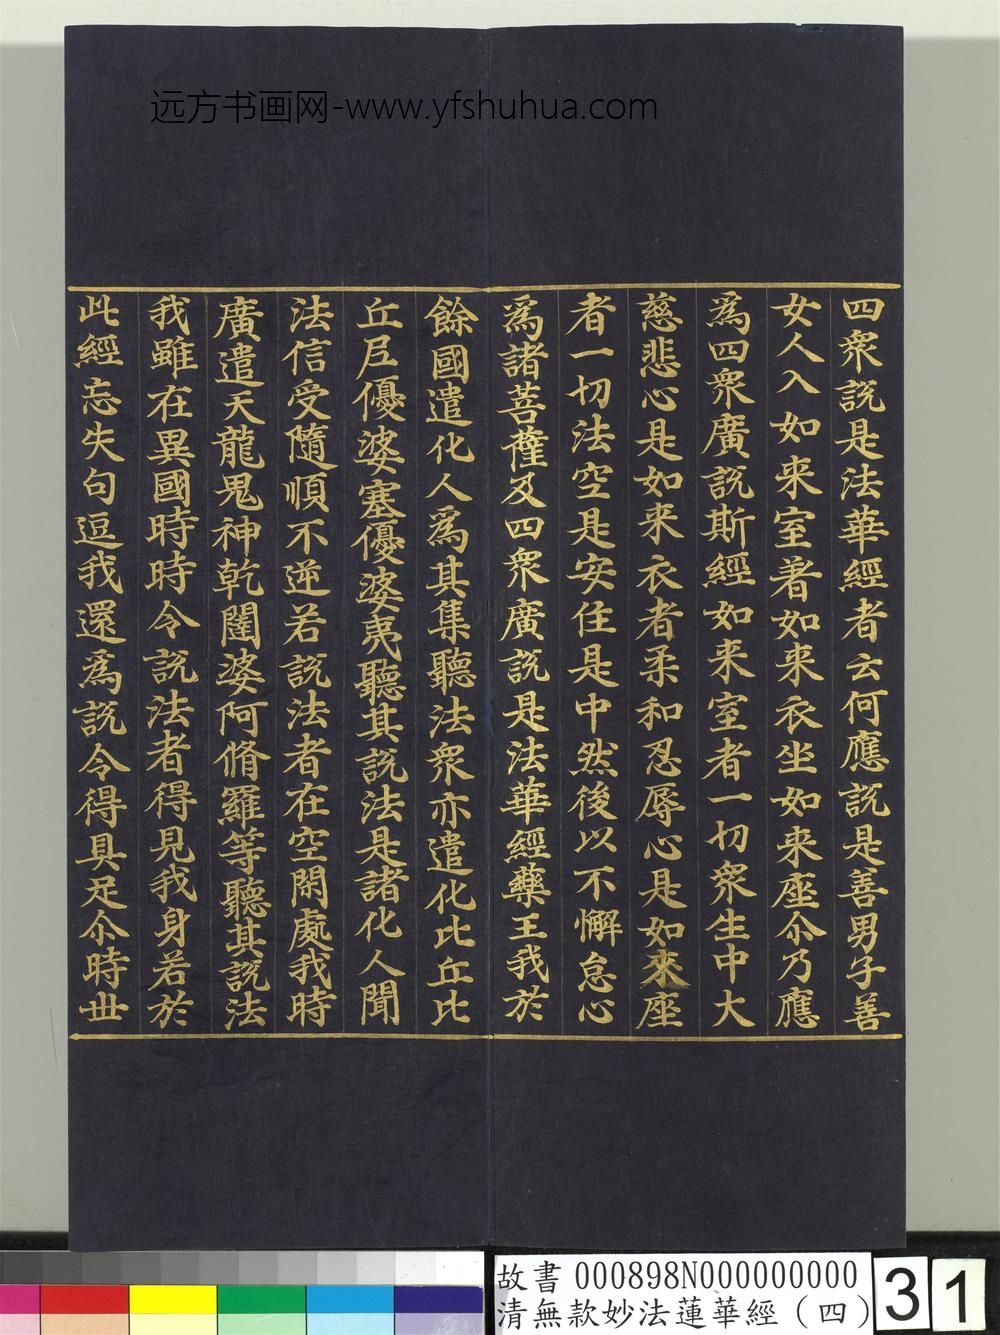 远方书画网-www.yfshuhua.com
四衆説是法華經者云何應説是善男子善
女人入如来室著如来衣坐如来座尒乃應
爲四衆廣説斯經如来室者一切衆生中大
慈悲心是如来衣者柔和忍辱心是如来座
者一切法空是安住是中然後以不懈怠心
爲諸菩薩及四衆廣説是法華經藥王我於
餘國遣化人爲其集聽法衆亦遣化比丘比
丘尼優婆塞優婆夷聽其説法是諸化人聞
法信受隨順不逆若説法者在空閑處我時
廣遣天龍鬼神乾闥婆阿脩羅等聽其説法
我雖在異國時時令説法者得見我身若於
此經忘失句逗我還爲説令得具足尒時世
故書 000898N000000000
清無款妙法蓮華經（四）
31